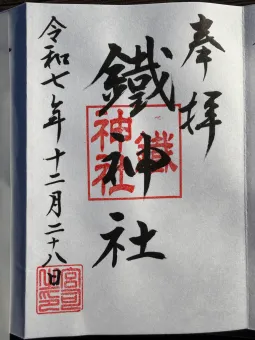 奉拝
鐵神社
鐵神社
令和七年十二月二十八日